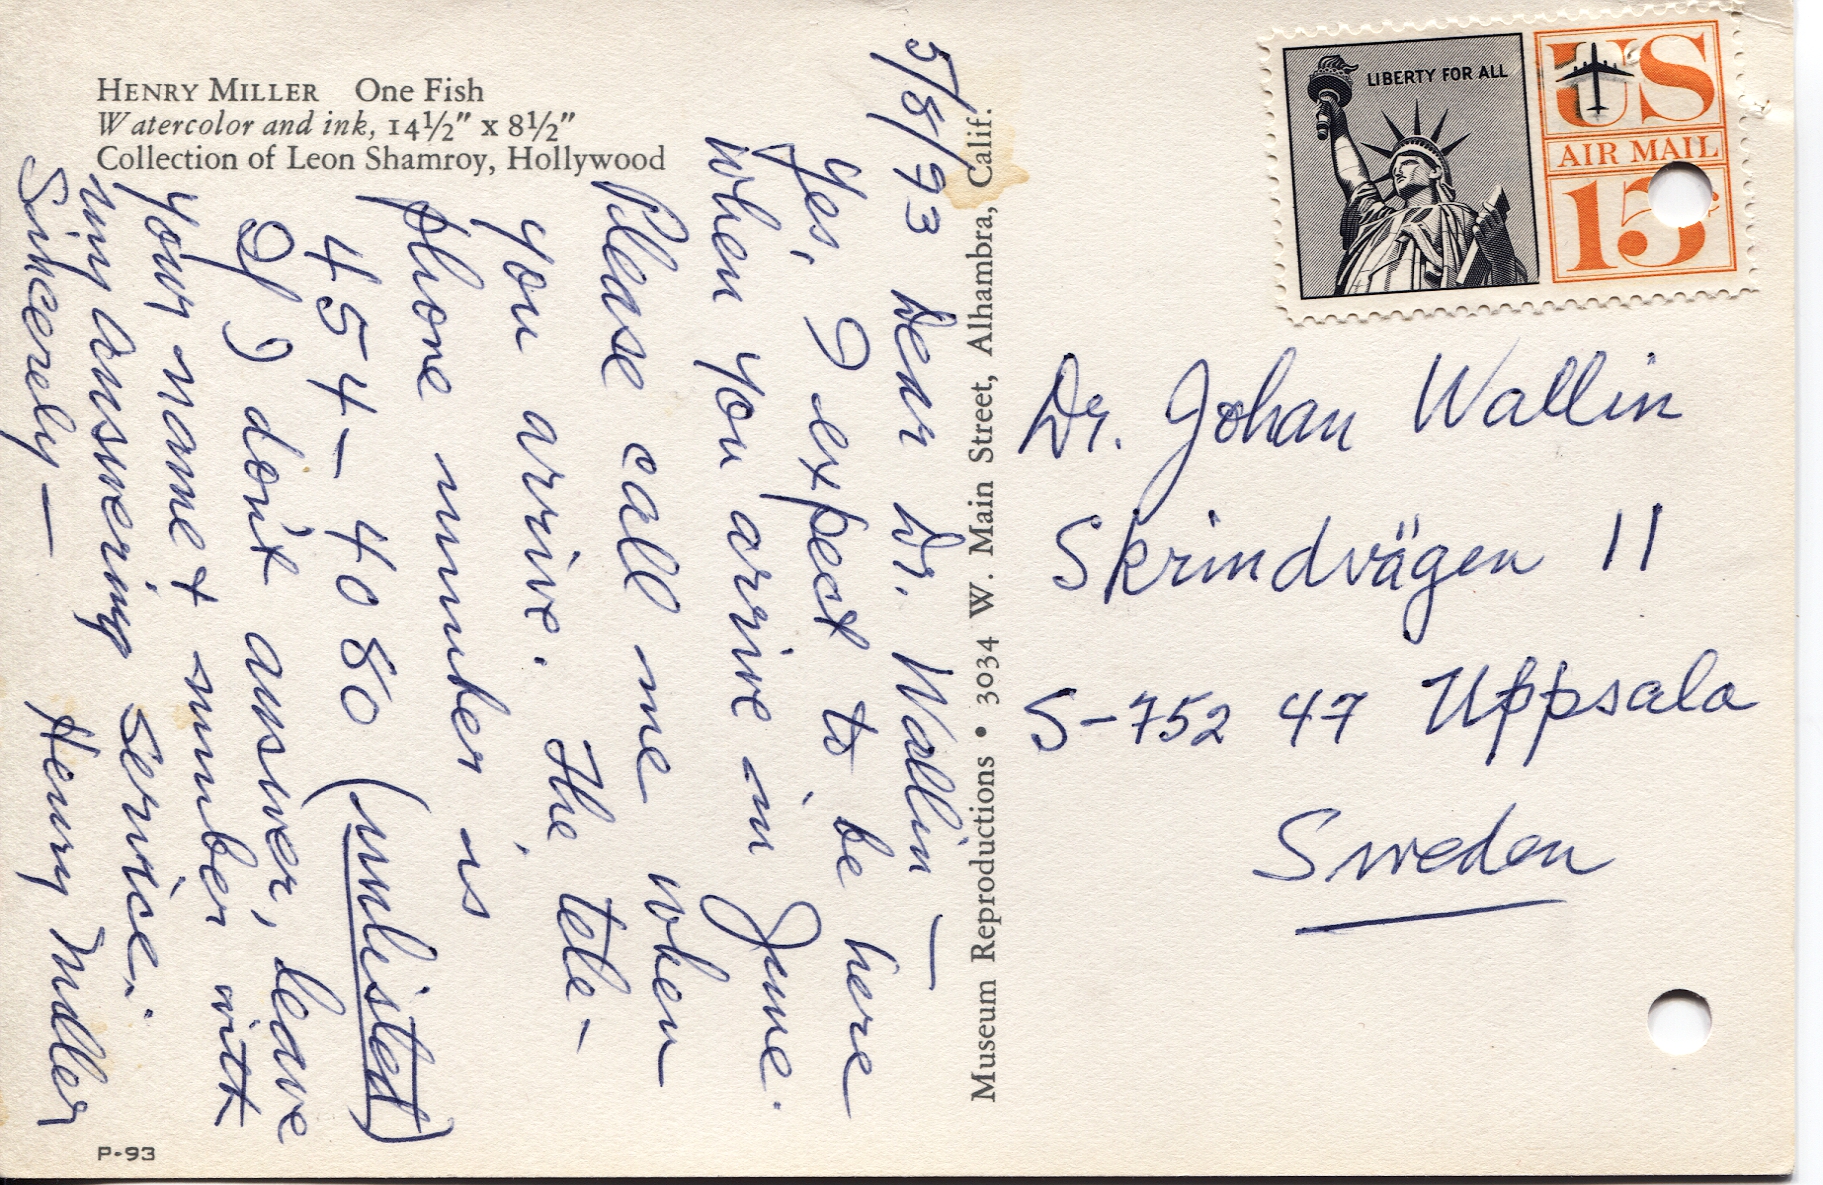 HENRY MILLER One Fish
Watercolor and ink, 14½" x 8½"
Collection of Leon Shamroy, Hollywood
5/8/73 Dear Dr. Wallin —
Yes, I expect to be here
when you arrive in June.
Please call me when
you arrive. The tele-
phone number is
454-4080 (unlisted)
If I don't answer, leave
your name + number with
my answering service.
Sincerely — Henry Miller
P-93
Museum Reproductions • 3034 W. Main Street, Alhambra, Calif.
LIBERTY FOR ALL
US
AIR MAIL
15¢
Dr. Johan Wallin
Skrindvägen 11
S-752 47 Uppsala
Sweden